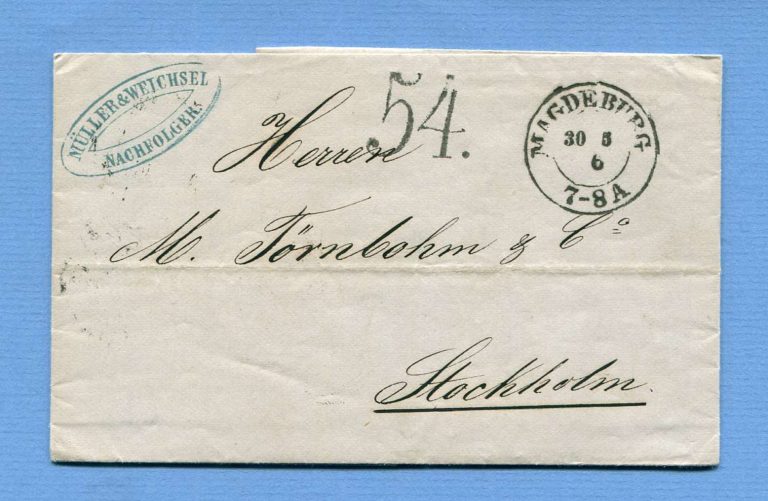 MÜLLER & WEICHSEL
NACHFOLGER.
54.
MAGDEBURG
30 5
6
7-8A
Herren
M. Törnbohm & Co
Stockholm.